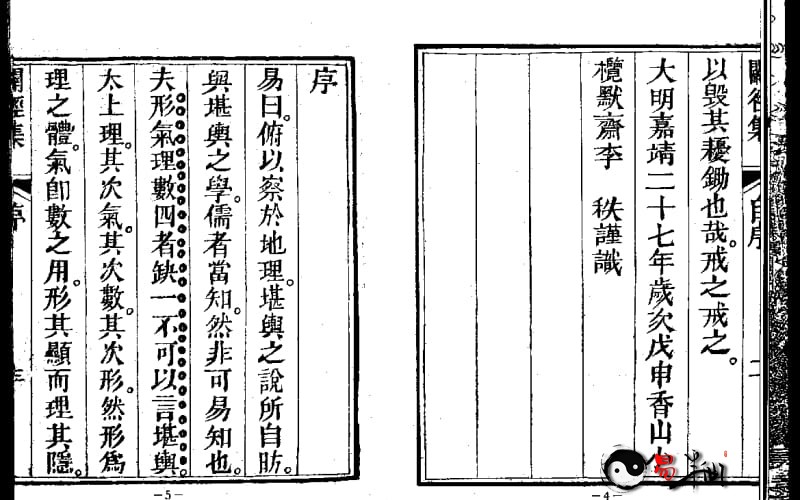 闢徑集
自序
二
以毀其耰鋤也哉。戒之戒之。
大明嘉靖二十七年歲次戊申香山
欖默齋李 秩謹識
—4—
序
易曰。俯以察於地理。堪輿之說所自昉。
與堪輿之學。儒者當知。然非可易知也。
夫形氣理數四者缺一不可以言堪輿。
太上理。其次氣。其次數。其次形。然形爲
理之體。氣卽數之用。形其顯而理其隱。
闢徑集
序
—5—
易